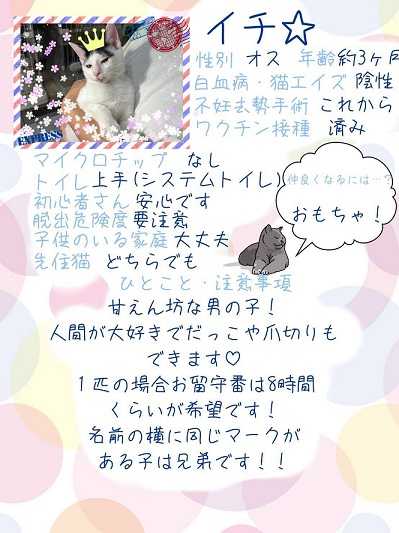 イチ☆
性別 オス 年齢 約3ヶ月
白血病・猫エイズ 陰性
不妊去勢手術 これから
ワクチン接種 済み
EXPRESS
マイクロチップ なし
トイレ 上手(システムトイレ)
初心者さん 安心です
脱出危険度 要注意
子供のいる家庭 大丈夫
先住猫 どちらでも
仲良くなるには…?
おもちゃ!
ひとこと・注意事項
甘えん坊な男の子!
人間が大好きでだっこや爪切りも
できます♡
1匹の場合お留守番は8時間
くらいが希望です!
名前の横に同じマークが
ある子は兄弟です!!